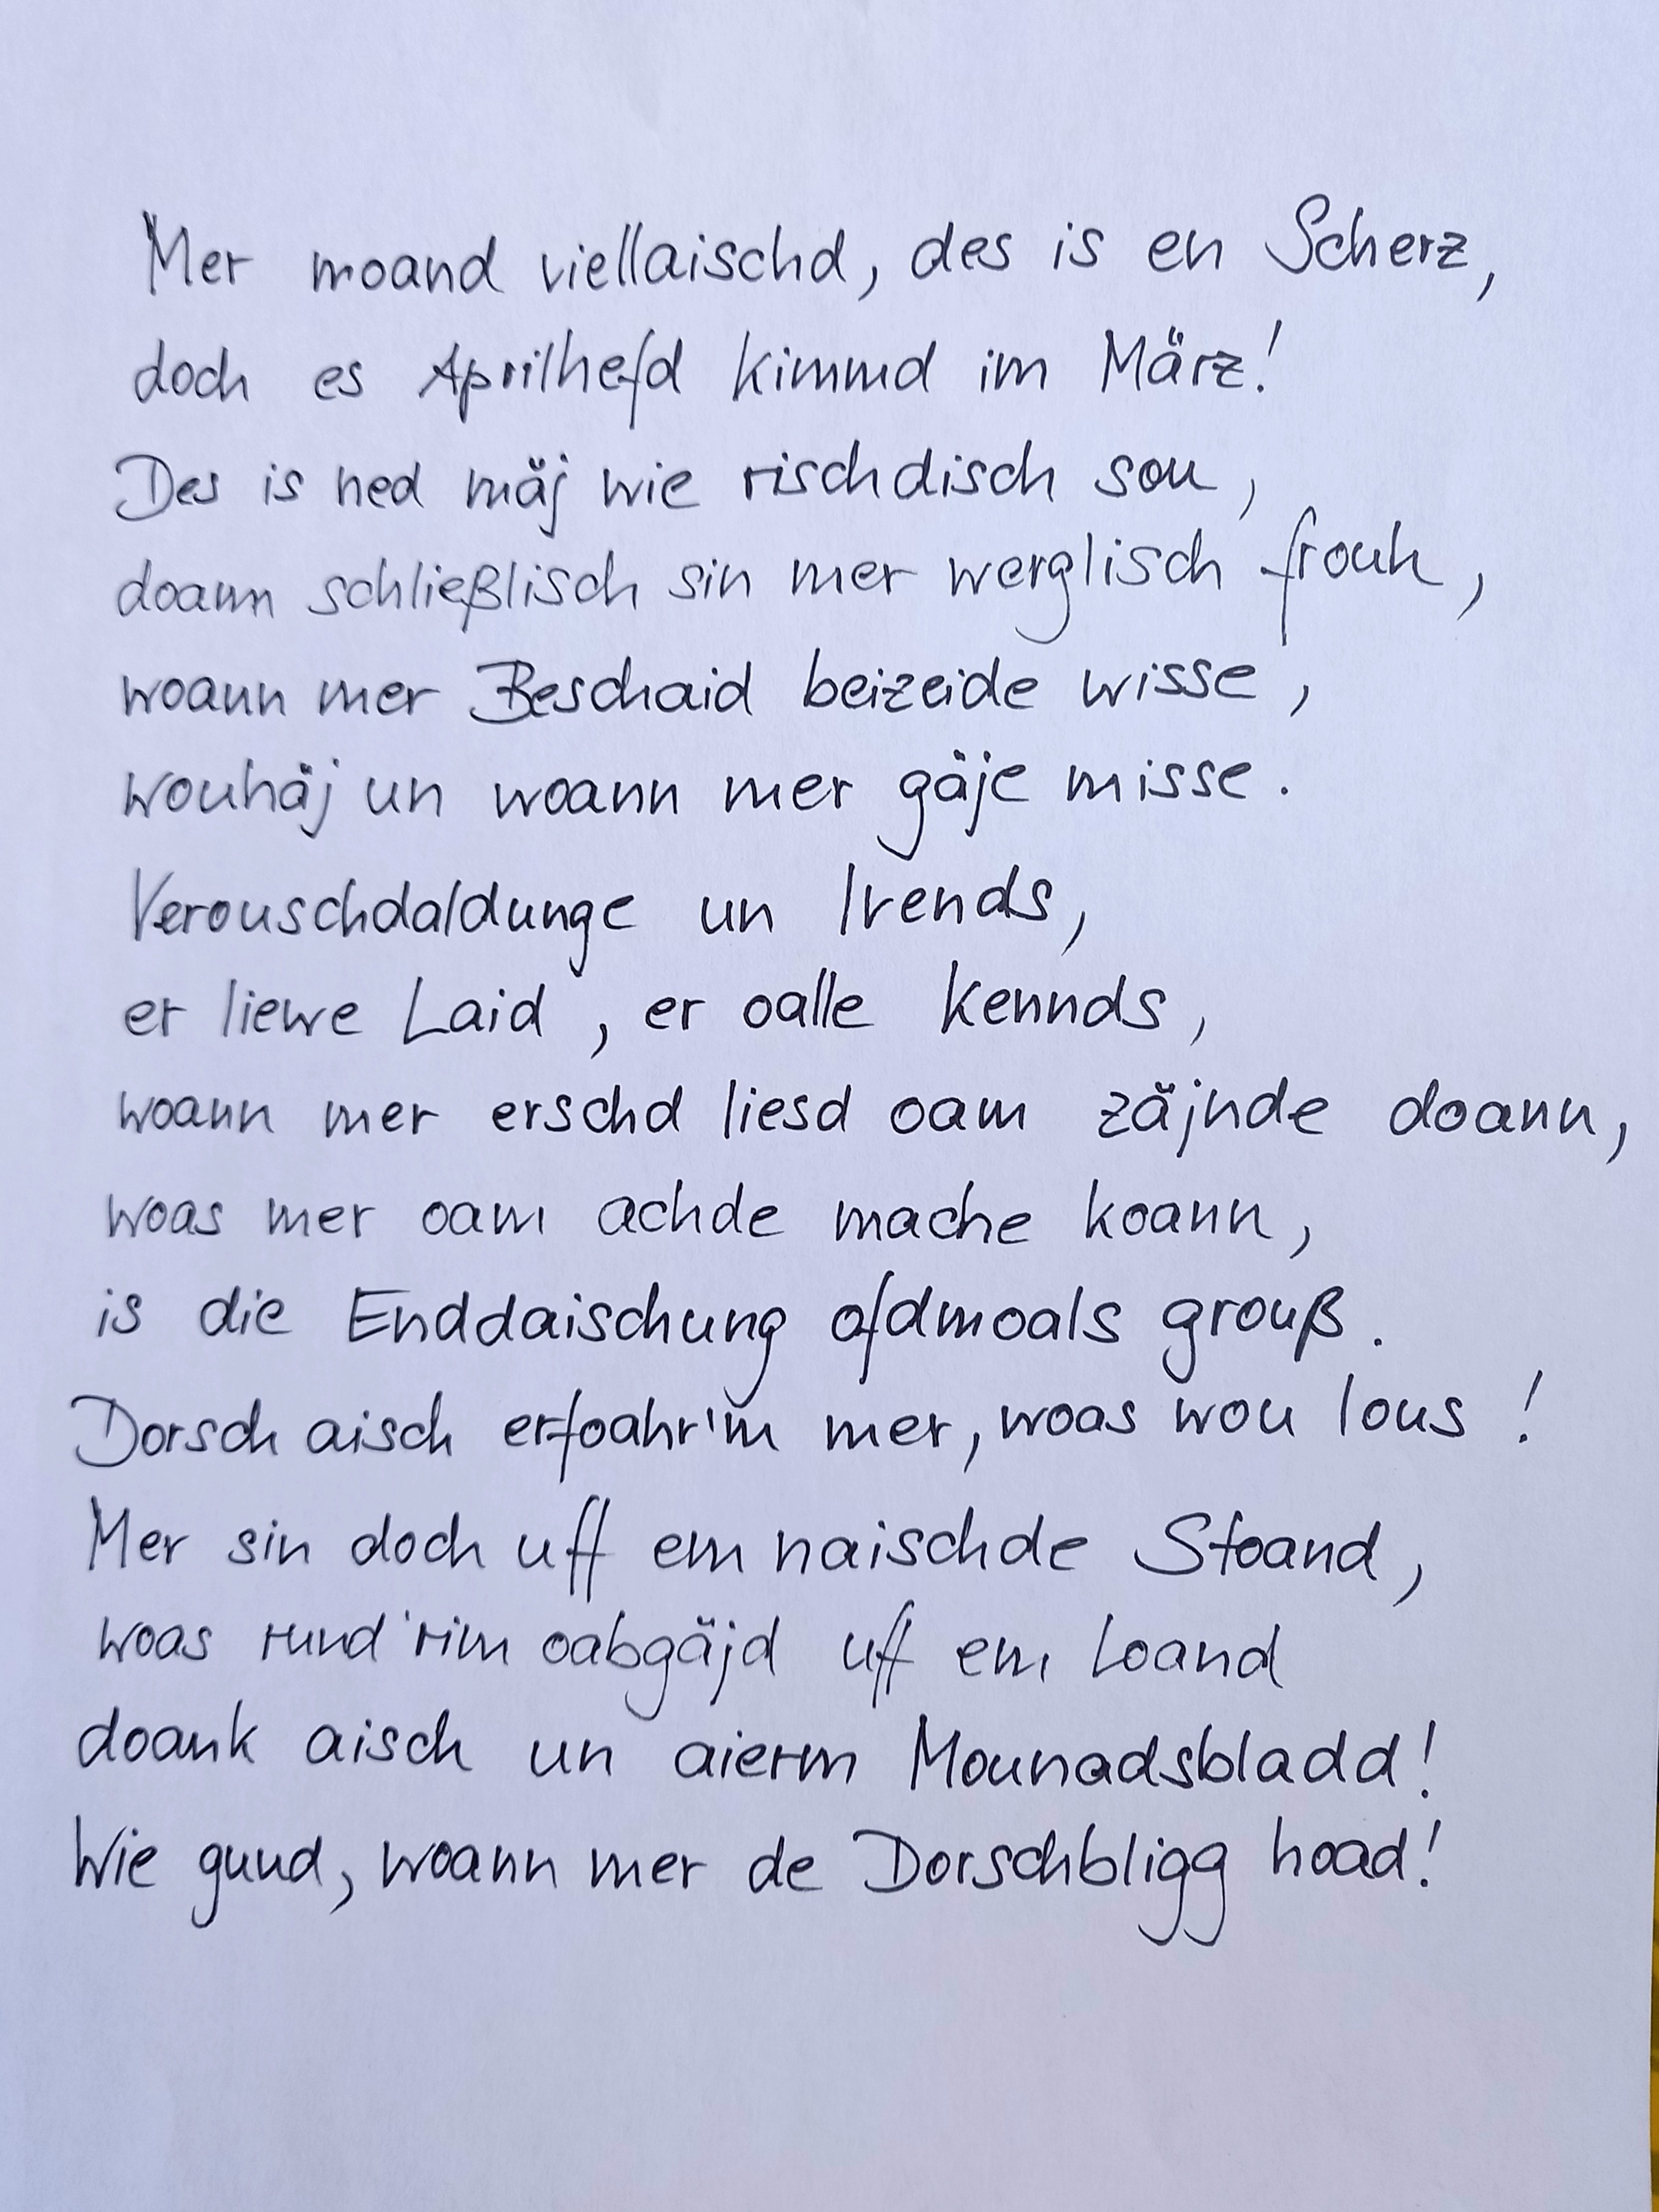 Mer moand viellaischd, des is en Scherz,
doch es Aprilhefd kimmd im März!
Des is ned mäj wie rischdisch sou,
doann schließlisch sin mer werglisch frouh,
woann mer Beschaid beizeide wisse,
wouhäj un woann mer gäje misse.
Verouschdaldunge un Trends,
er liewe Laid, er oalle kennds,
woann mer erschd liesd oam zäjnde doann,
woas mer oam achde mache koann,
is die Enddaischung ofdmoals grouß.
Dorsch aisch erfoahr'm mer, woas wou lous!
Mer sin doch uff em naischde Stoand,
woas rund'rim oabgäjd uff em Loand
doank aisch un aierm Mounadsbladd!
Wie guud, woann mer de Dorschbligg hoad!